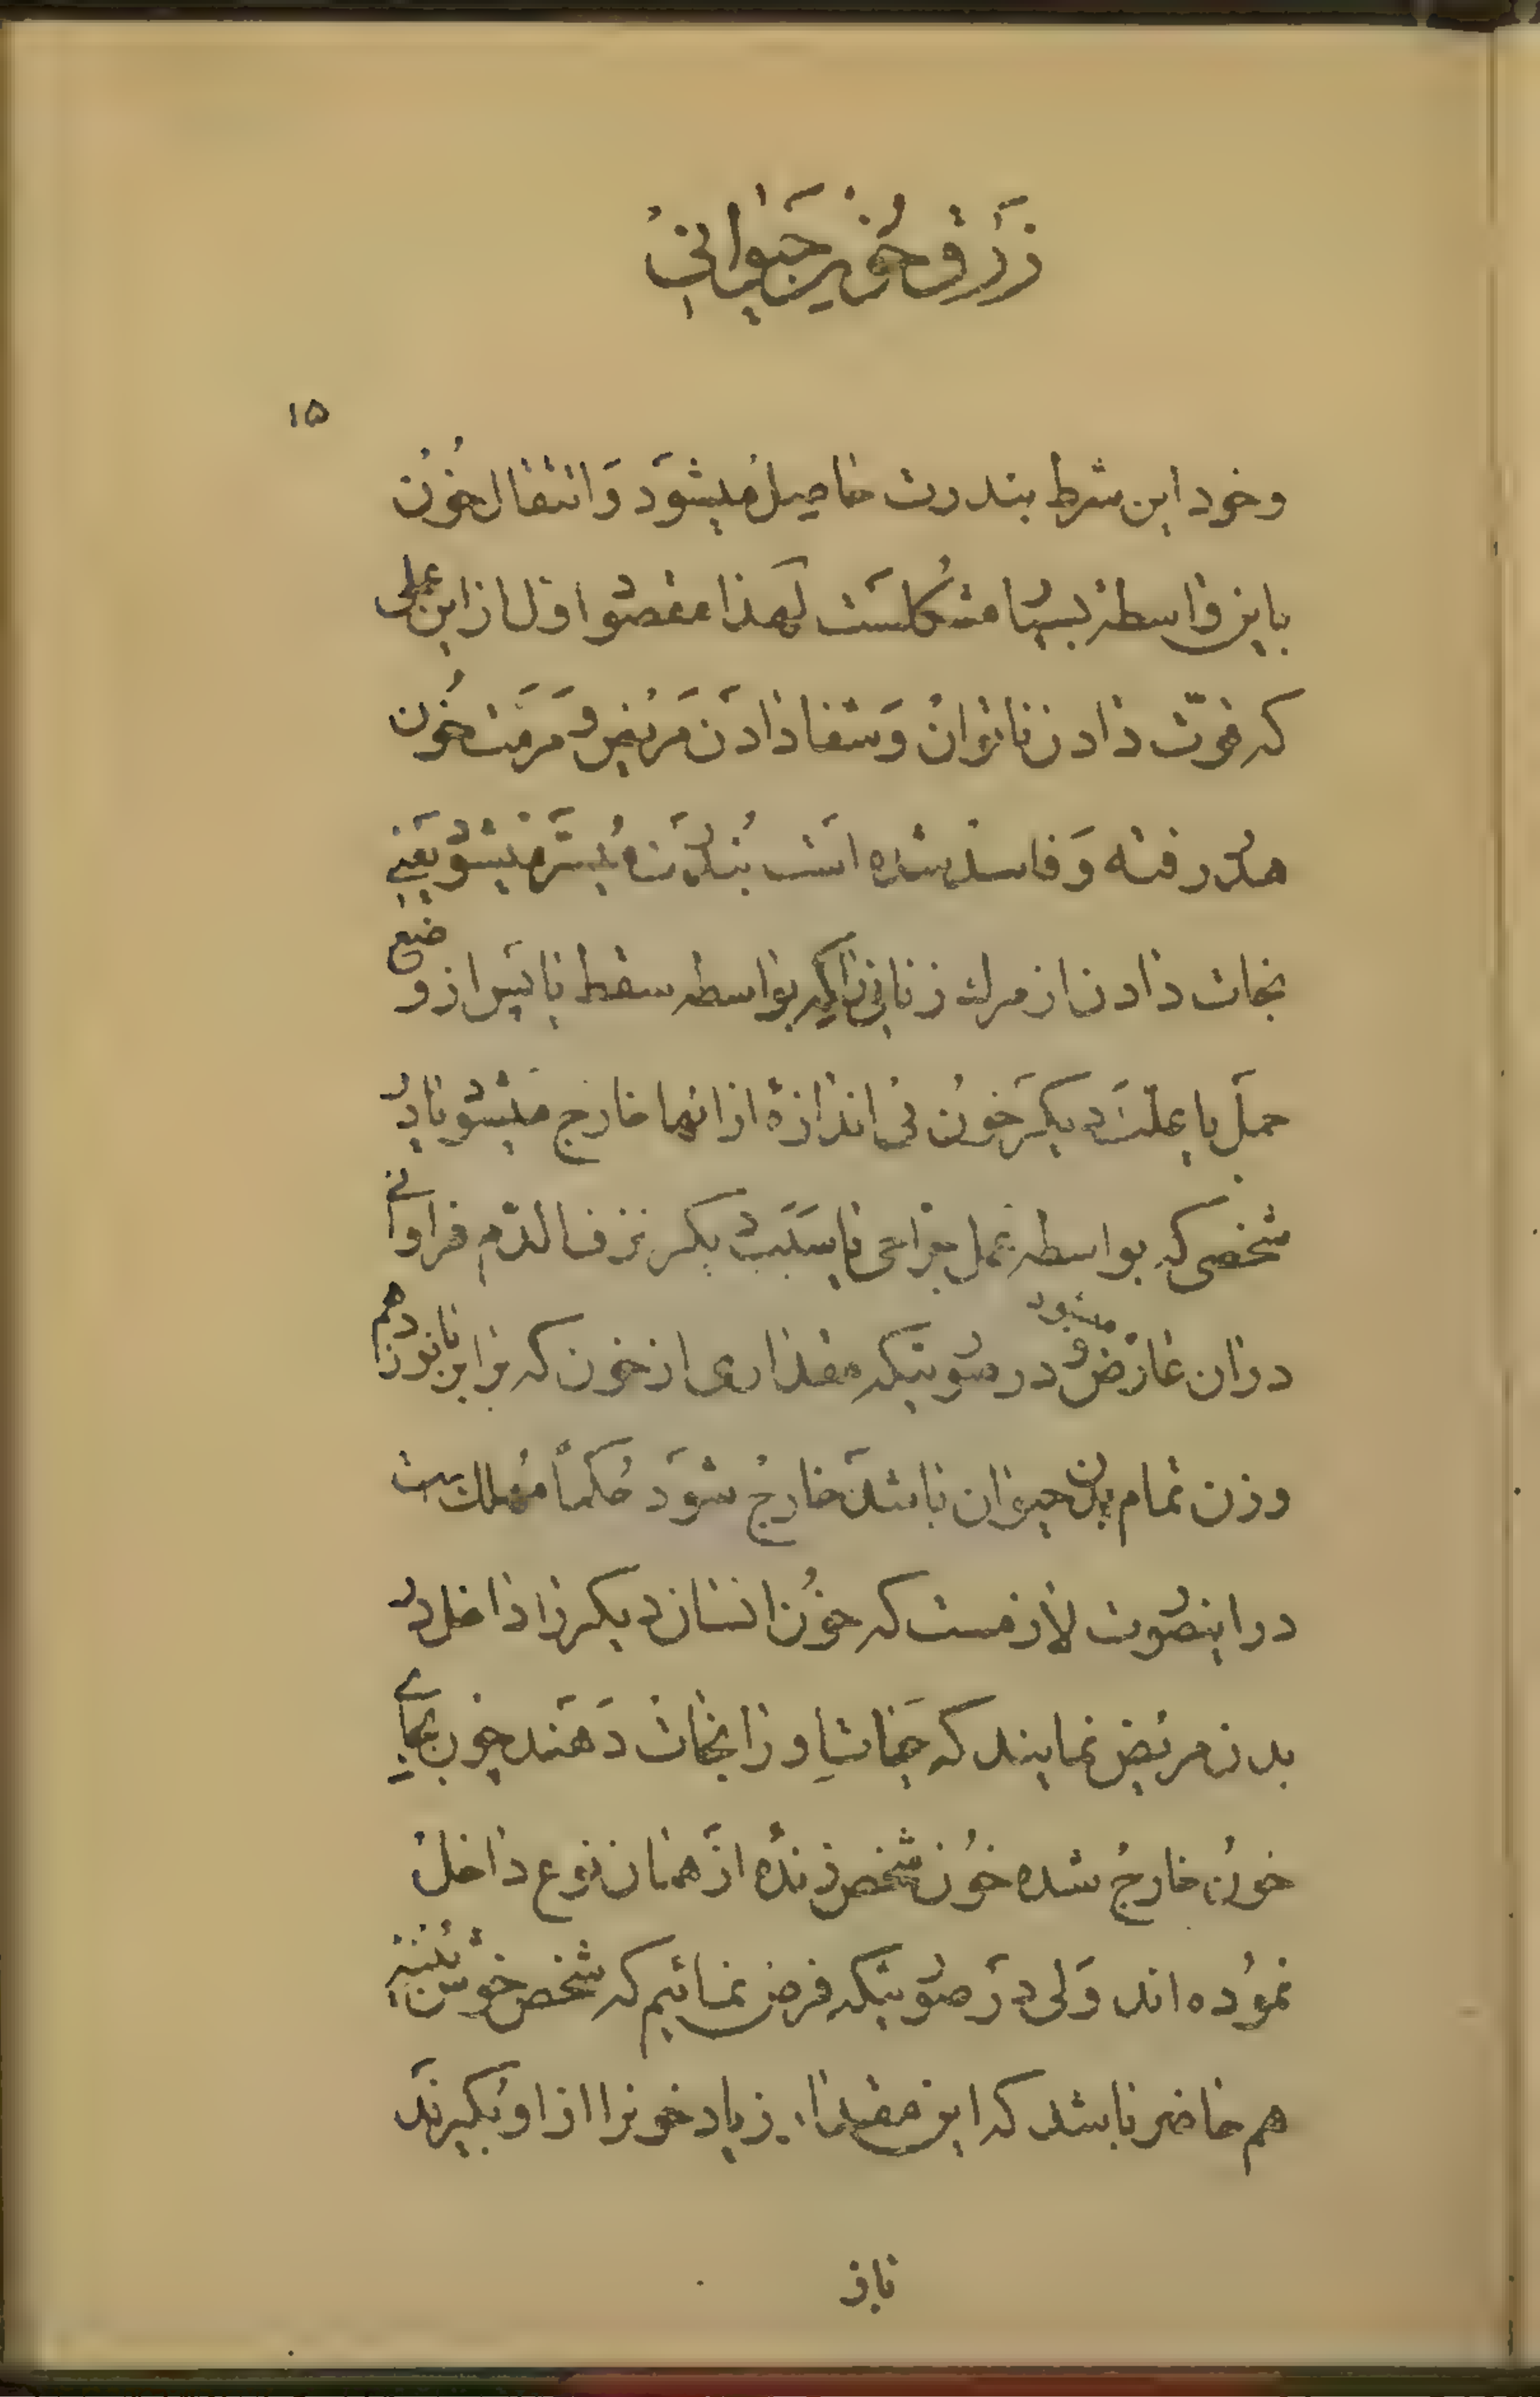 زرق خون حیوانی
۱۵
و خود این شرط بندرت حاصل میشود و انتقال خون
باین واسطه بسیار مشکلست لهذا مقصود اول از این عمل
که قوت دادن ناتوان و شفا دادن مریض و مرمت خون
هدر رفته و فاسد شده است بندرت میسر میشود یعنی
نجات دادن از مرك زنانی را که بواسطه سقط یا پس از وضع
حمل یا بعلت دیکر خون بی اندازه از انها خارج میشود یا در
شخصی که بواسطه عمل جراحی یا سبب دیکر نزف الدم فراوانی
در ان عارض میشود و در صورتیکه مقداری از خون که برابر با نوزدهم
وزن تمام بدن حیوان باشد خارج شود حکماً مهلك است
در اینصورت لازمست که خون انسان دیکر را داخل در
بدن مریض نمایند که حیات او را نجات دهند چون بجای
خون خارج شده خون شخص زنده از همان نوع داخل
نموده اند ولی در صورتیکه فرض نمائیم که شخص خوش بنیه
هم حاضر باشد که این مقدار زیاد خونرا از او بکیرند
باز